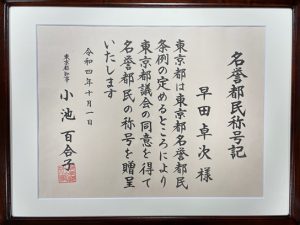 名誉都民称号記
早田卓次様
東京都は東京都名誉都民
条例の定めるところにより
東京都議会の同意を得て
名誉都民の称号を贈呈
いたします
令和四年十月一日
東京都知事
小池百合子